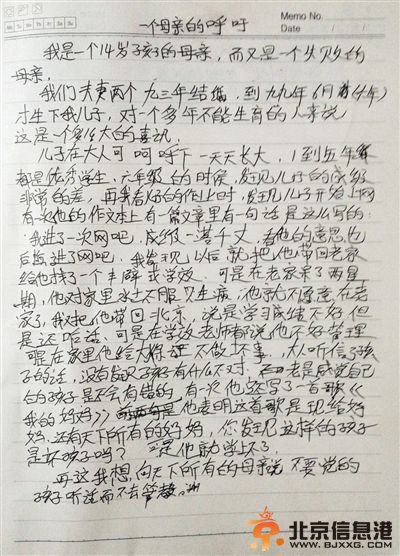 一个母亲的呼吁
Memo No.
Mo Tu We Th Fr Sa Su
Date / /
我是一个14岁孩子的母亲，而又是一个失败的
母亲，
我们夫妻两个九三年结婚，到九九年6月
才生下我儿子，对一个多年不能生育的人来说
这是一个多么大的喜讯，
儿子在大人呵呵呼下一天天长大，1到五年级
都是优秀学生，六年级的时候，发现儿子的成绩
非常的差，再我看他的作业时，发现儿子开始上网
有次他的作文本上有一篇文章里有一句话是这么写的:
“我进了一次网吧，成绩一落千丈，看他的意思也
后悔进了网吧，我发现以后就把他带回老家
给他找了一个学校。可是在老家呆了两星
期，他对家里水土不服，生病，他就不愿意在老
家了，我又把他带回北京，说是学习成绩不好但
是还 可是在学校老师都说他不好管理
可是在家里他给大人保证不做坏事，大人听信了孩
子的话，没有发现孩子有什么不对，老是感觉自己
的孩子是不会有错的，有次他还写了一首歌《
我的妈妈》他表明这首歌是献给妈
妈，还有天下所有的妈妈，你发现这样的孩子
是坏孩子吗？是他就学坏了，
再这我想，向天下所有的母亲说不要觉的
孩子听话而不去管教。
北京信息港
WWW.BJXXG.COM